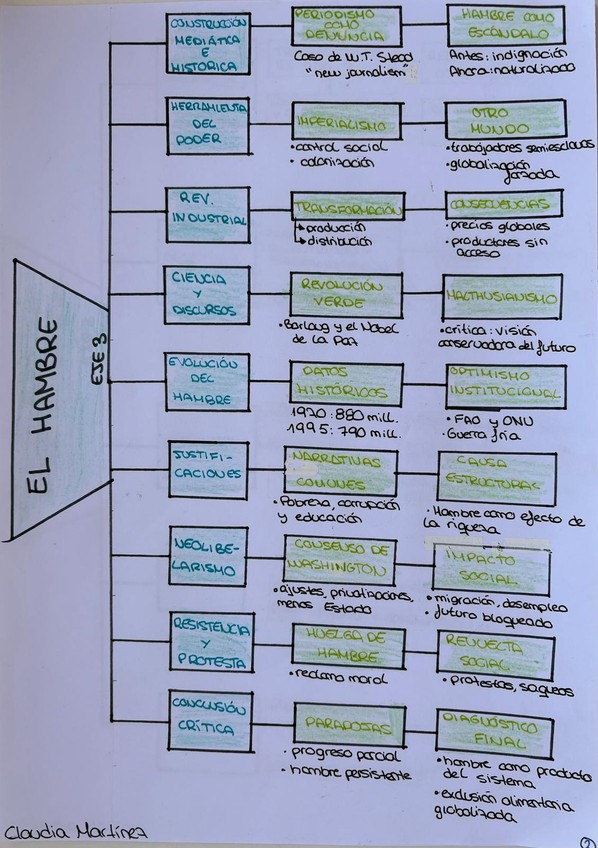 EL HAMBRE
EJE 3
CONSTRUCCIÓN
MEDIÁTICA
E
HISTÓRICA
PERIODISMO
COMO
DENUNCIA
Caso de W.T. Stead
"new journalism"
HAMBRE COMO
ESCÁNDALO
Antes: indignación
Ahora: naturalizado
HERRAMIENTA
DEL
PODER
IMPERIALISMO
• control social
• colonización
OTRO
MUNDO
• trabajadores semiesclavos
• globalización
forzada
REV.
INDUSTRIAL
TRANSFORMACIÓN
→ producción
→ distribución
CONSECUENCIAS
• precios globales
• productores sin
acceso
CIENCIA
Y
DISCURSOS
REVOLUCIÓN
VERDE
• Borlaug y el Nobel
de la Paz
MALTHUSIANISMO
• crítica: visión
conservadora del futuro
EVOLUCIÓN
DEL
HAMBRE
DATOS
HISTÓRICOS
1970: 880 mill.
1995: 790 mill.
OPTIMISMO
INSTITUCIONAL
• FAO y ONU
• Guerra fría
JUSTIFI-
CACIONES
NARRATIVAS
COMUNES
• Pobreza, corrupción
y educación
CAUSA
ESTRUCTURAL
• Hambre como efecto de
la riqueza
NEOLIBE-
LARISMO
CONSENSO DE
WASHINGTON
• ajustes, privatizaciones,
menos Estado
IMPACTO
SOCIAL
• migración, desempleo
• futuro bloqueado
RESISTENCIA
Y
PROTESTA
HUELGA DE
HAMBRE
• reclamo moral
REVUELTA
SOCIAL
• protestas, saqueos
CONCLUSIÓN
CRÍTICA
PARADOJAS
• progreso parcial
• hambre persistente
DIAGNÓSTICO
FINAL
• hambre como producto
del sistema
• exclusión alimentaria
globalizada
Claudia Martínez